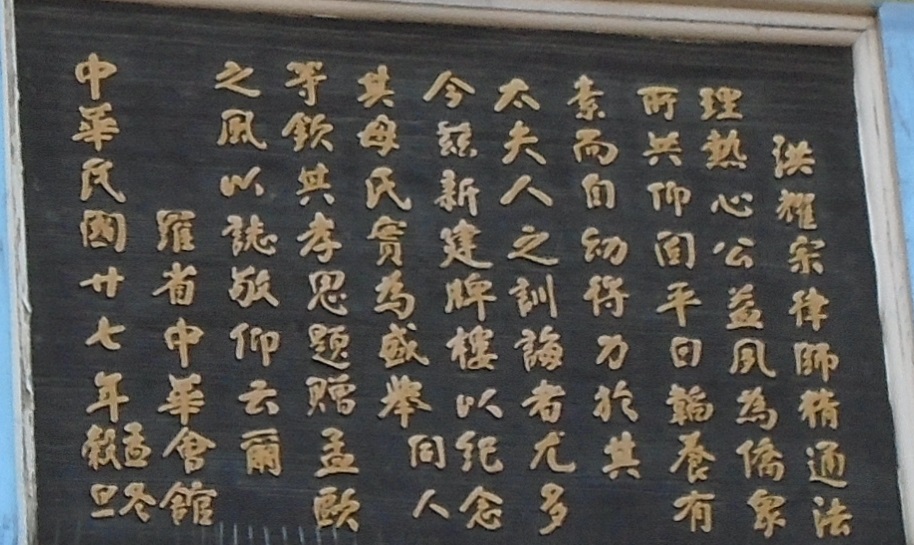 洪耀宗律師精通法
理熱心公益夙為僑眾
所共仰固平日韜養有
素而自幼得力於其
太夫人之訓誨者尤多
今茲新建牌樓以紀念
其母氏實為盛舉同人
等欽其孝思題贈孟歐
之風以誌敬仰云爾
羅省中華會館
中華民國廿七年孟冬穀旦